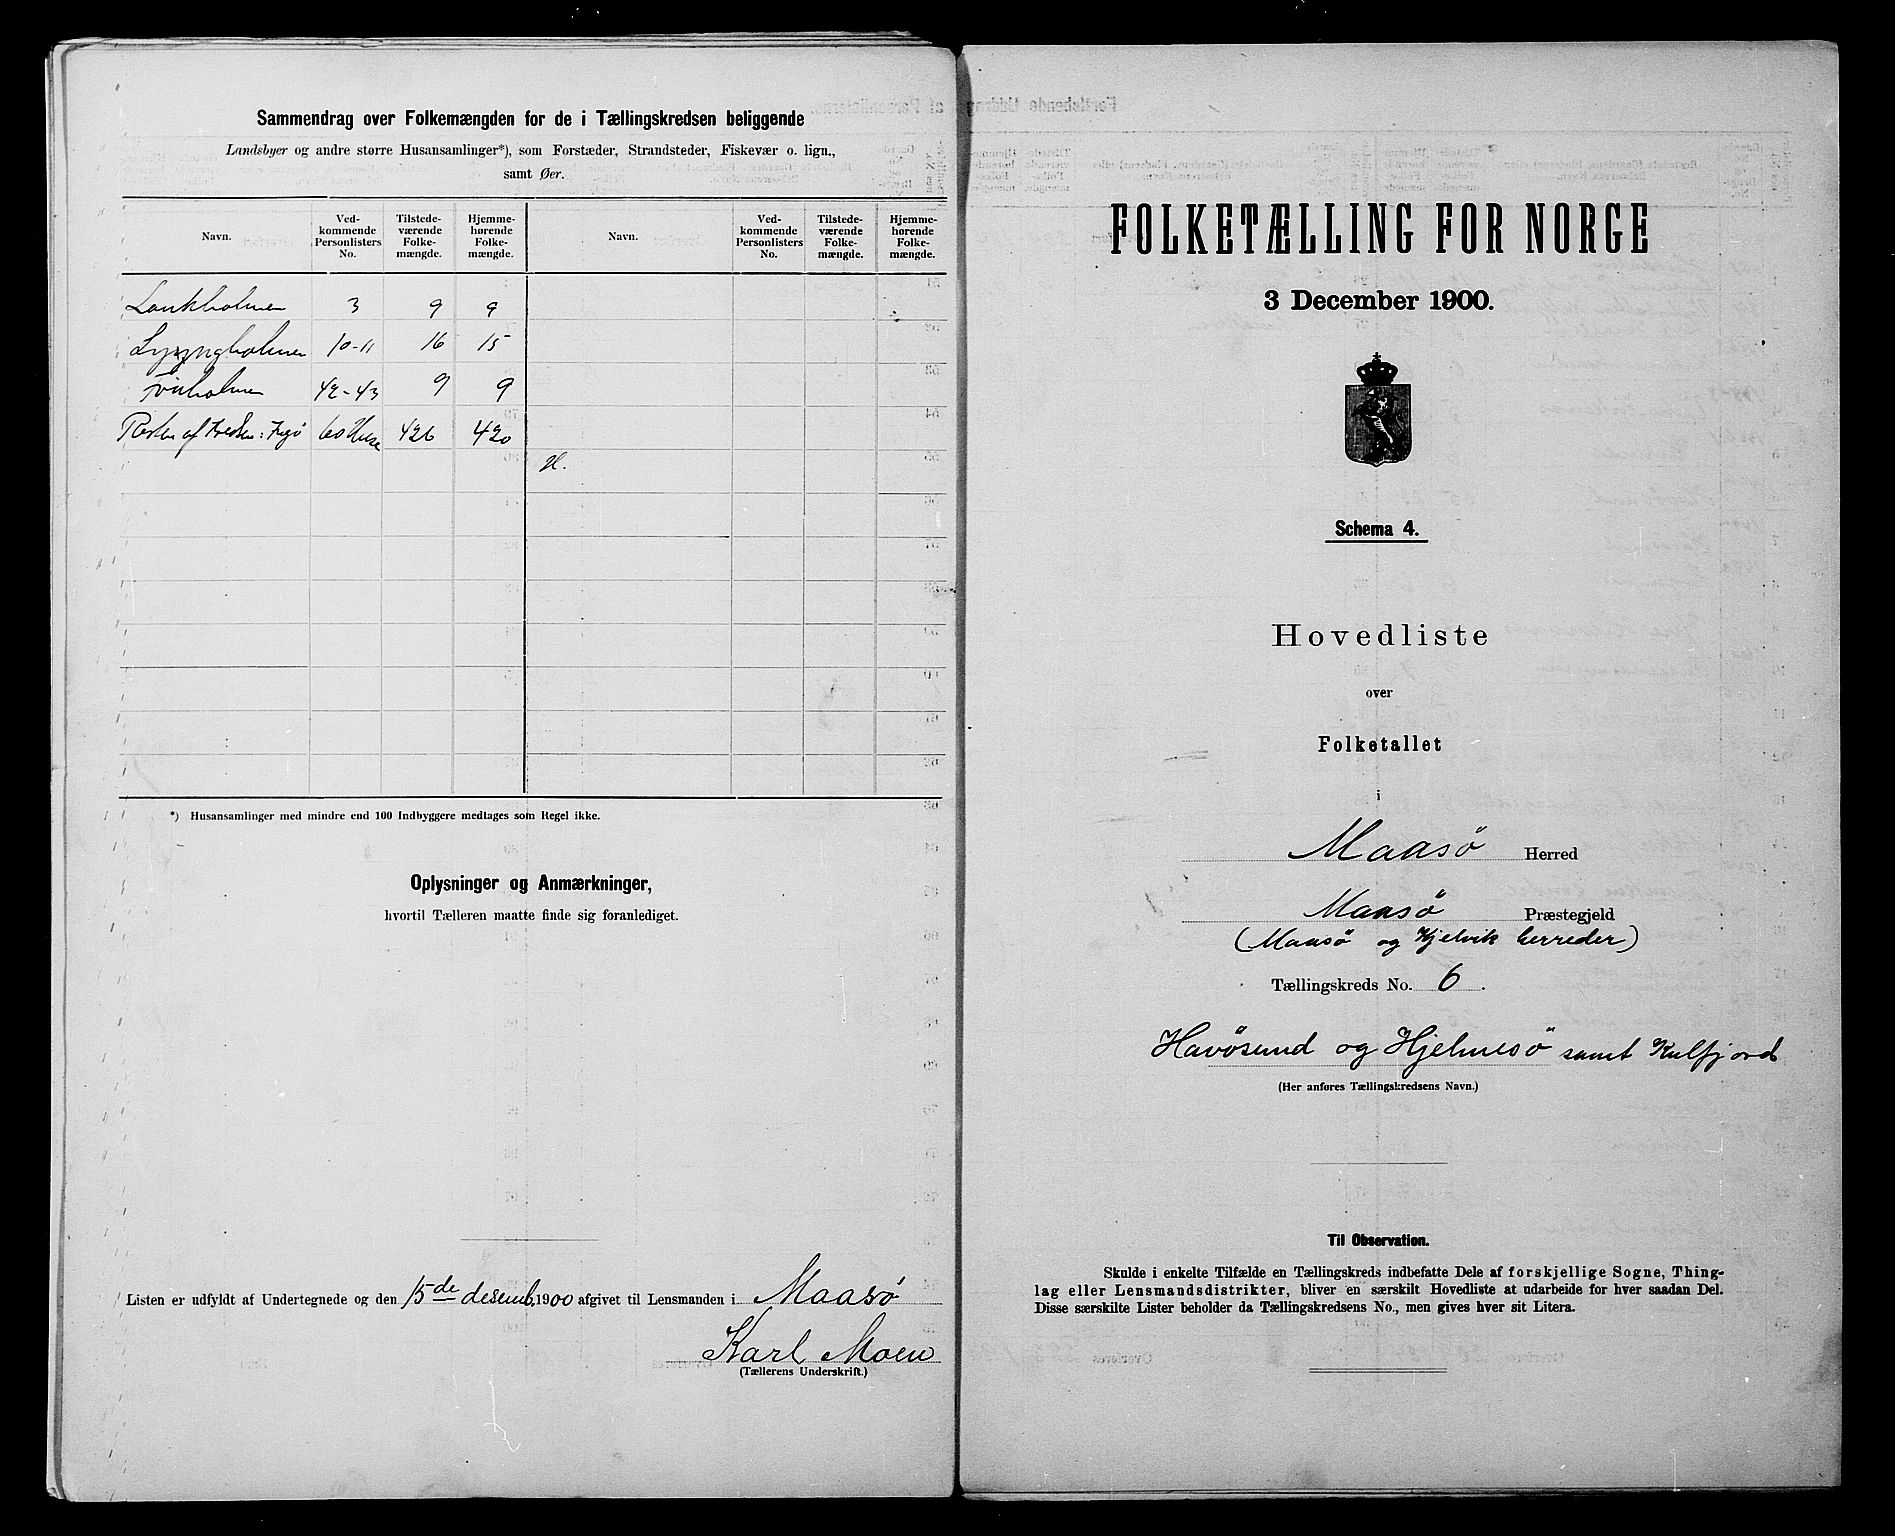 Sammendrag over Folkemængden for de i Tællingskredsen beliggende
Landsbyer og andre større Husansamlinger*), som Forstæder, Strandsteder, Fiskevær o. lign.,
samt Øer.
Navn. Ved-kommende Personlisters No. Tilstede-værende Folke-mængde. Hjemme-hørende Folke-mængde. Navn. Ved-kommende Personlisters No. Tilstede-værende Folke-mængde. Hjemme-hørende Folke-mængde.
3 9 9
10-11 16 15
42-43 9 9
Resten af Kredsen: Ingø 60 Huse 426 420
*) Husansamlinger med mindre end 100 Indbyggere medtages som Regel ikke.
Oplysninger og Anmærkninger,
hvortil Tælleren maatte finde sig foranlediget.
Listen er udfyldt af Undertegnede og den 15de desemb. 1900 afgivet til Lensmanden i Maasø
Karl Moen
(Tællerens Underskrift.)
FOLKETÆLLING FOR NORGE
3 December 1900.
Schema 4.
Hovedliste
over
Folketallet
i
Maasö Herred
Maasö Præstegjeld
(Maasö og Kjelvik herreder)
Tællingskreds No. 6.
Havösund og Hjelmesö samt Kulfjord
(Her anføres Tællingskredsens Navn.)
Til Observation.
Skulde i enkelte Tilfælde en Tællingskreds indbefatte Dele af forskjellige Sogne, Thing-
lag eller Lensmandsdistrikter, bliver en særskilt Hovedliste at udarbeide for hver saadan Del.
Disse særskilte Lister beholder da Tællingskredsens No., men gives hver sit Litera.